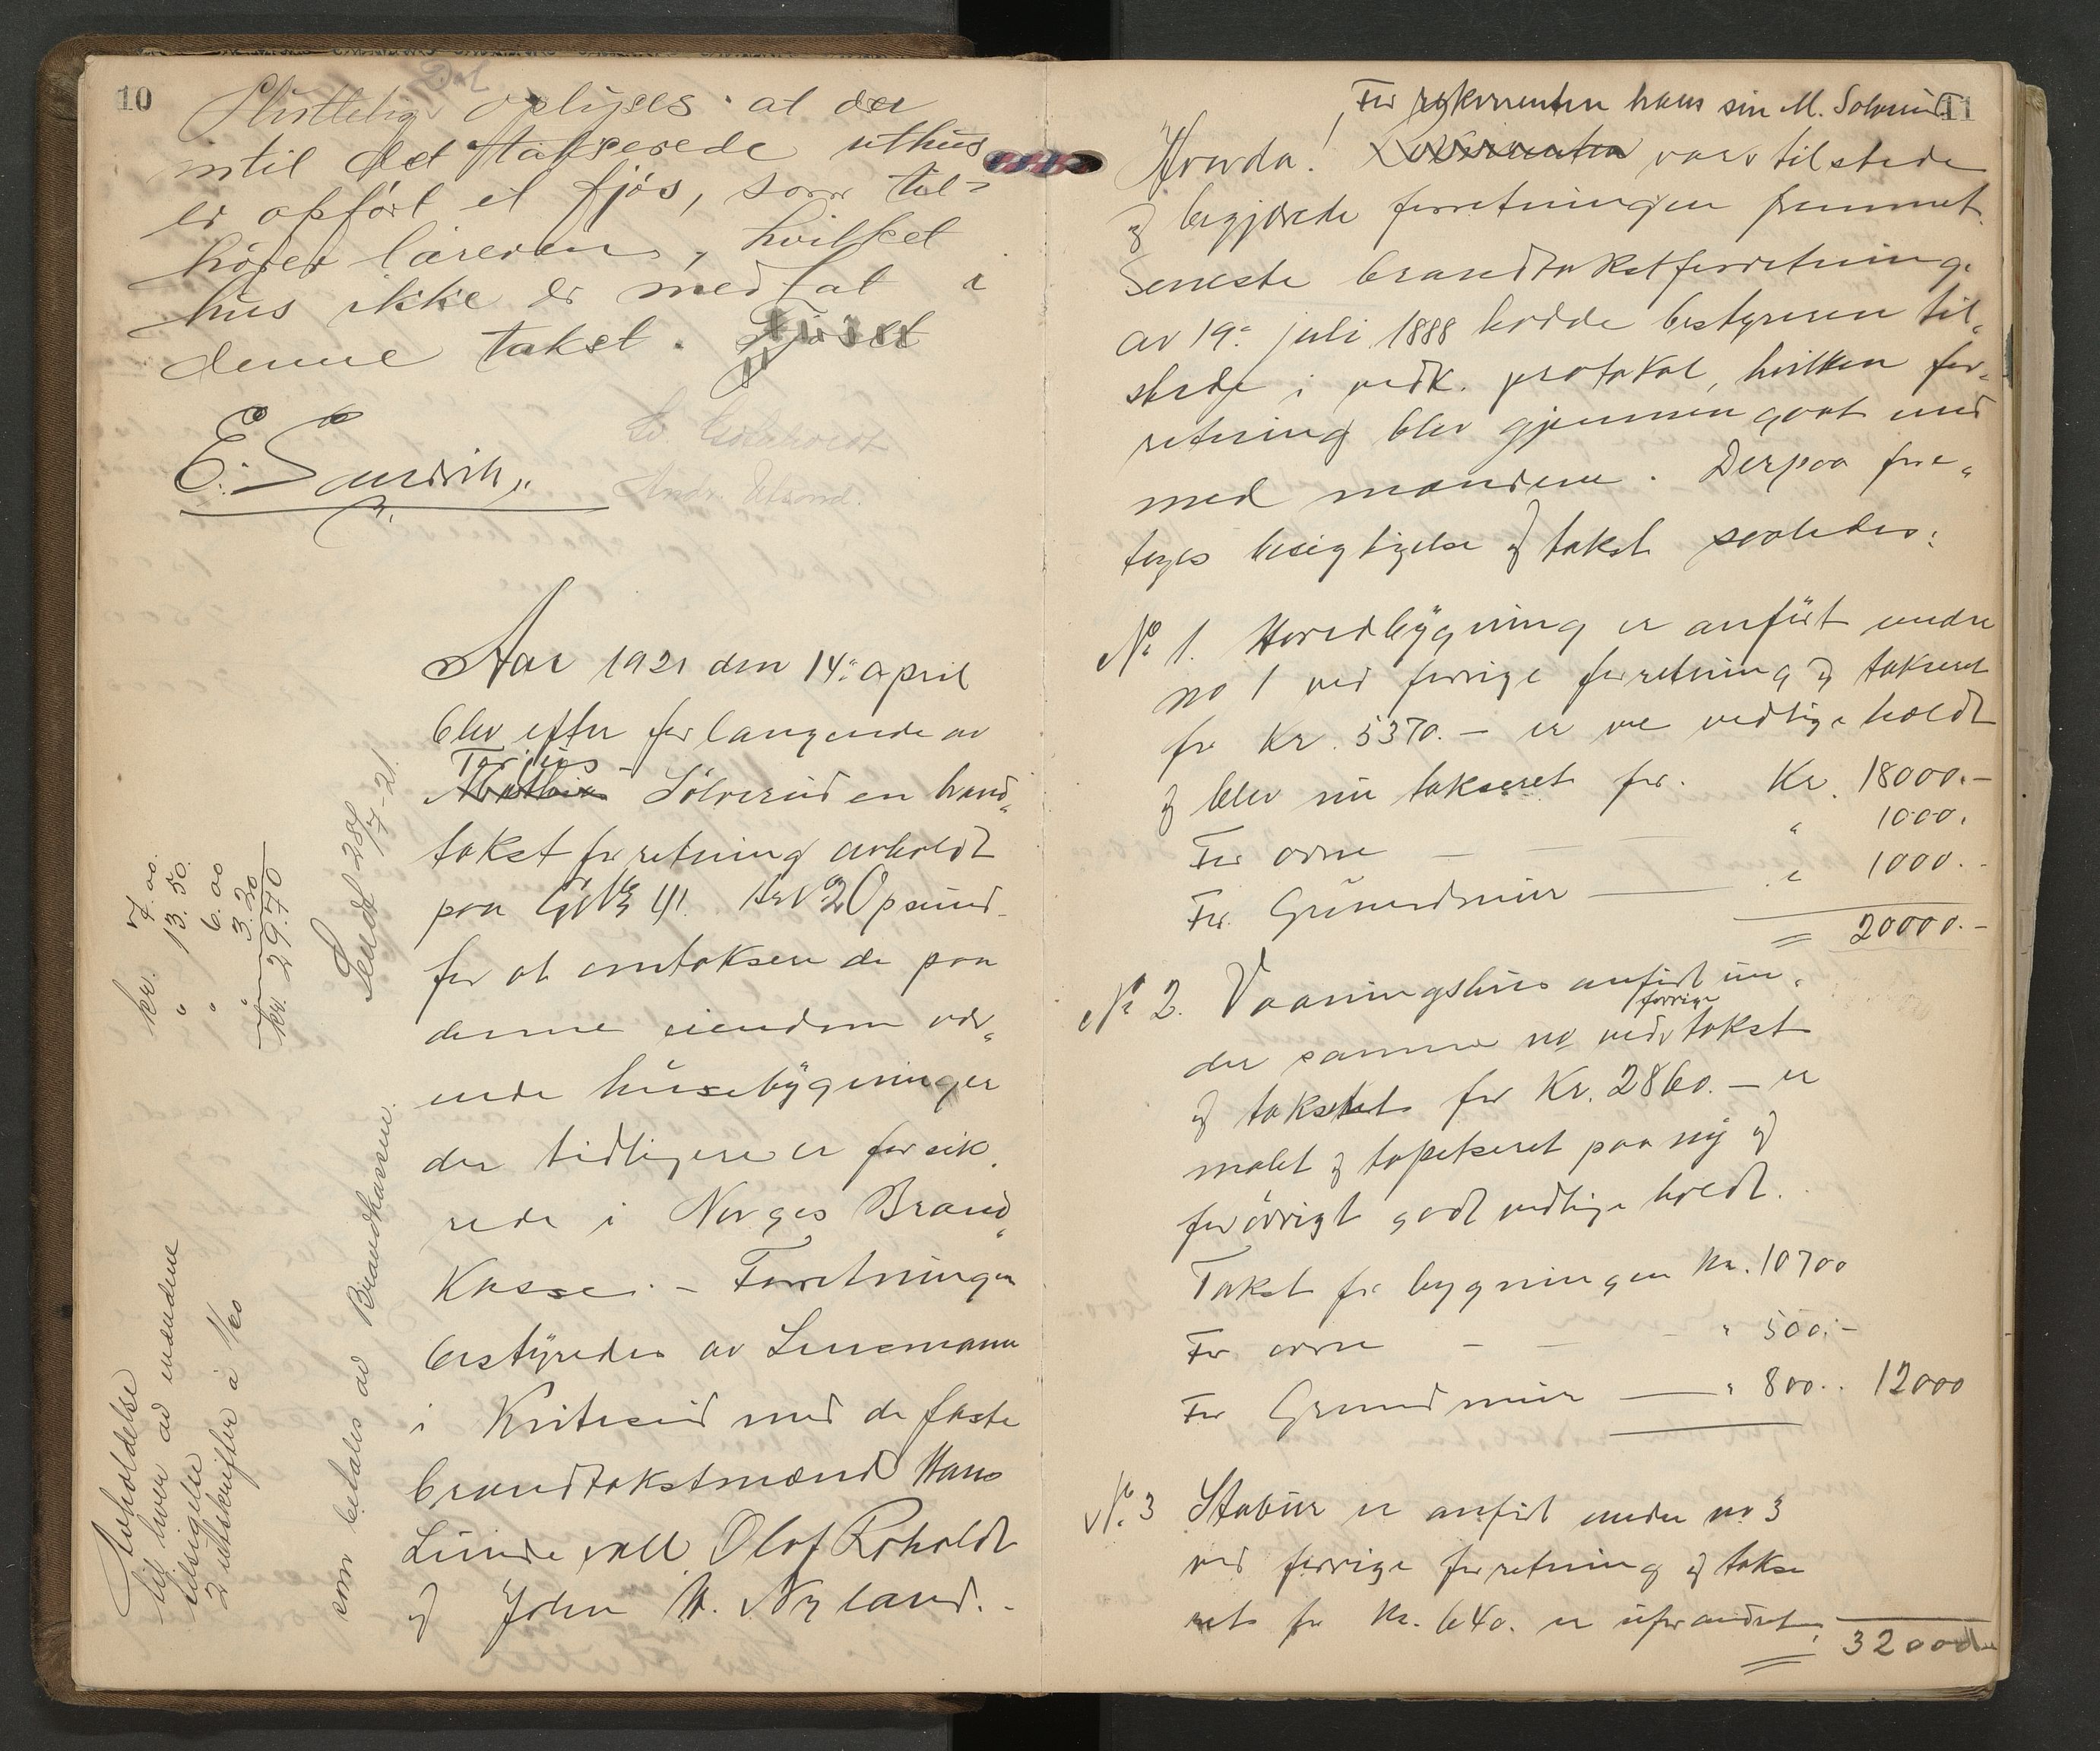 10
Sluttelig oplyses at der
intil det takserede uthus
er opført et fjøs, som til-
hører læreren, hvilket
hus ikke er medtat i
denne takst.
E.
Aar 1921 den 14. april
blev efter forlangende av
Torjus
Mathias Sölverud en brand-
takst forretning avholdt
paa
for at omtaksere de paa
denne eiendom vær-
ende husebygninger
der tidligere er forsik
rede i Norges Brand-
Kasse. – Forretningen
bestyredes av Lensmann
i Kviteseid med de faste
brandtakstmænd Hans
Lunde, Olof Roholdt
og John H. Nyland.
kr. 7.00.
" 13.50.
" 6.00
3.20
kr. 29.70
Sendt 28/7-21.
Avholdelse
til hver av mændene
tilsigelse
2 utskrifter à 1/60
som betales av Brandkassen.
11
For rekvirenten hans søn M. Solverud
Hovda! Rekvirenten var tilstede
og begjærede forretningen fremmet.
Seneste brandtakstforretning
av 19. juli 1888 hadde bestyreren til-
stede i vedk. protokol, hvilken for-
retning blev gjennemgaat
med mændene. Derpaa fore-
toges besigtigelse og takst saaledes:
No 1. Hovedbygning er anført under
no 1 ved forrige forretning og takseret
for Kr. 5370.– er vedlige holdt
og blev nu takseret for Kr. 18000.–
For ovne — — " 1000.
For Grundmur — " 1000.–
20000.–
No 2. Vaaningshus anført un-
forrige
der samme no ved takst
og takstert for Kr. 2860.– er
malet og tapetseret paa ny og
forövrigt godt vedlige holdt.
Takst for bygningen Kr. 10700
For ovne — — " 500.–
For Grundmur — " 800.. 12000
No. 3 Stabur er anført under no 3
ved forrige forretning og takse
ret for Kr. 640. er uforandret
32000